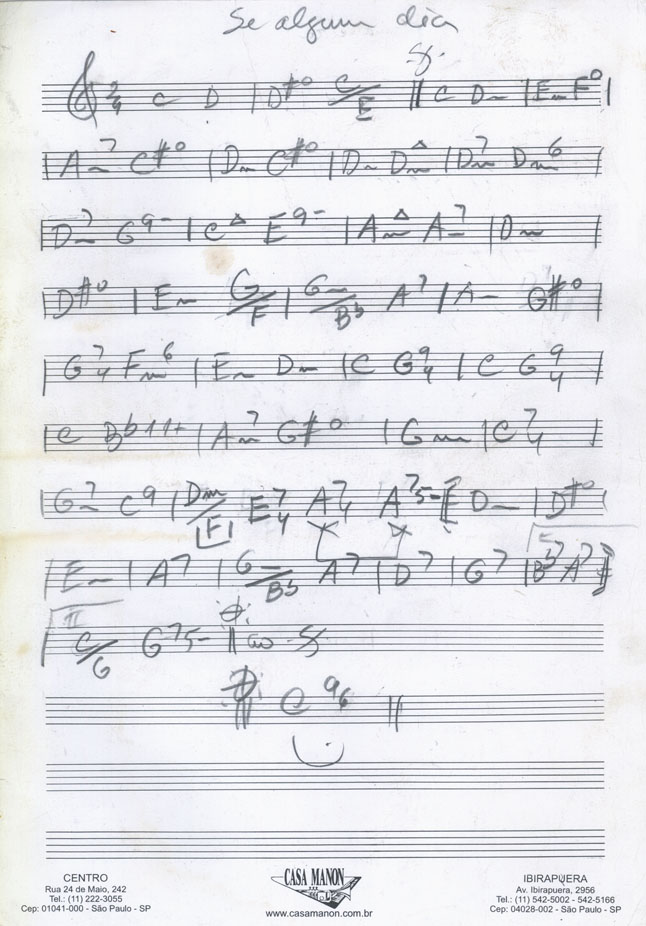 Se algum dia
2/4 C D | D#º C/E || C Dm | Em Fº |
A-7 C#º | Dm C#º | Dm DmΔ | Dm7 Dm6
D-7 G9- | CΔ E9- | AmΔ A-7 | Dm
D#º | Em G/F | Gm/Bb A7 | A- G#º
G74 Fm6 | Em Dm | C G94 | C G94
C Bb11+ | Am7 G#º | Gm | C74
G-7 C9 | Dm/F E74 A74 A75- Dm | D#º
Em | A7 | G-/Bb A7 | D7 | G7 | Bb7 A7
II
C/G G75- || ao
C 9 6 ||
CENTRO
Rua 24 de Maio, 242
Tel.: (11) 222-3055
Cep: 01041-000 - São Paulo - SP
CASA MANON
www.casamanon.com.br
IBIRAPUERA
Av. Ibirapuera, 2956
Tel.: (11) 542-5002 - 542-5166
Cep: 04028-002 - São Paulo - SP